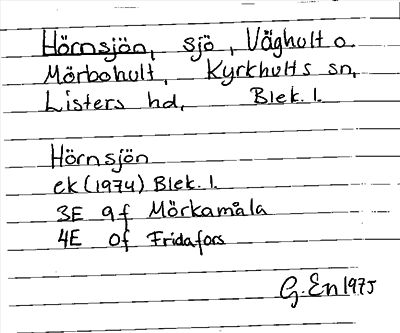 Hörnsjön, sjö, Vägholt o.
Mörboholt, Kyrkhults sn,
Listers hd, Blek. l.
Hörnsjön
ek (1974) Blek. l.
3E 9f Mörkamåla
4E 0f Fridafors
G. En 1975